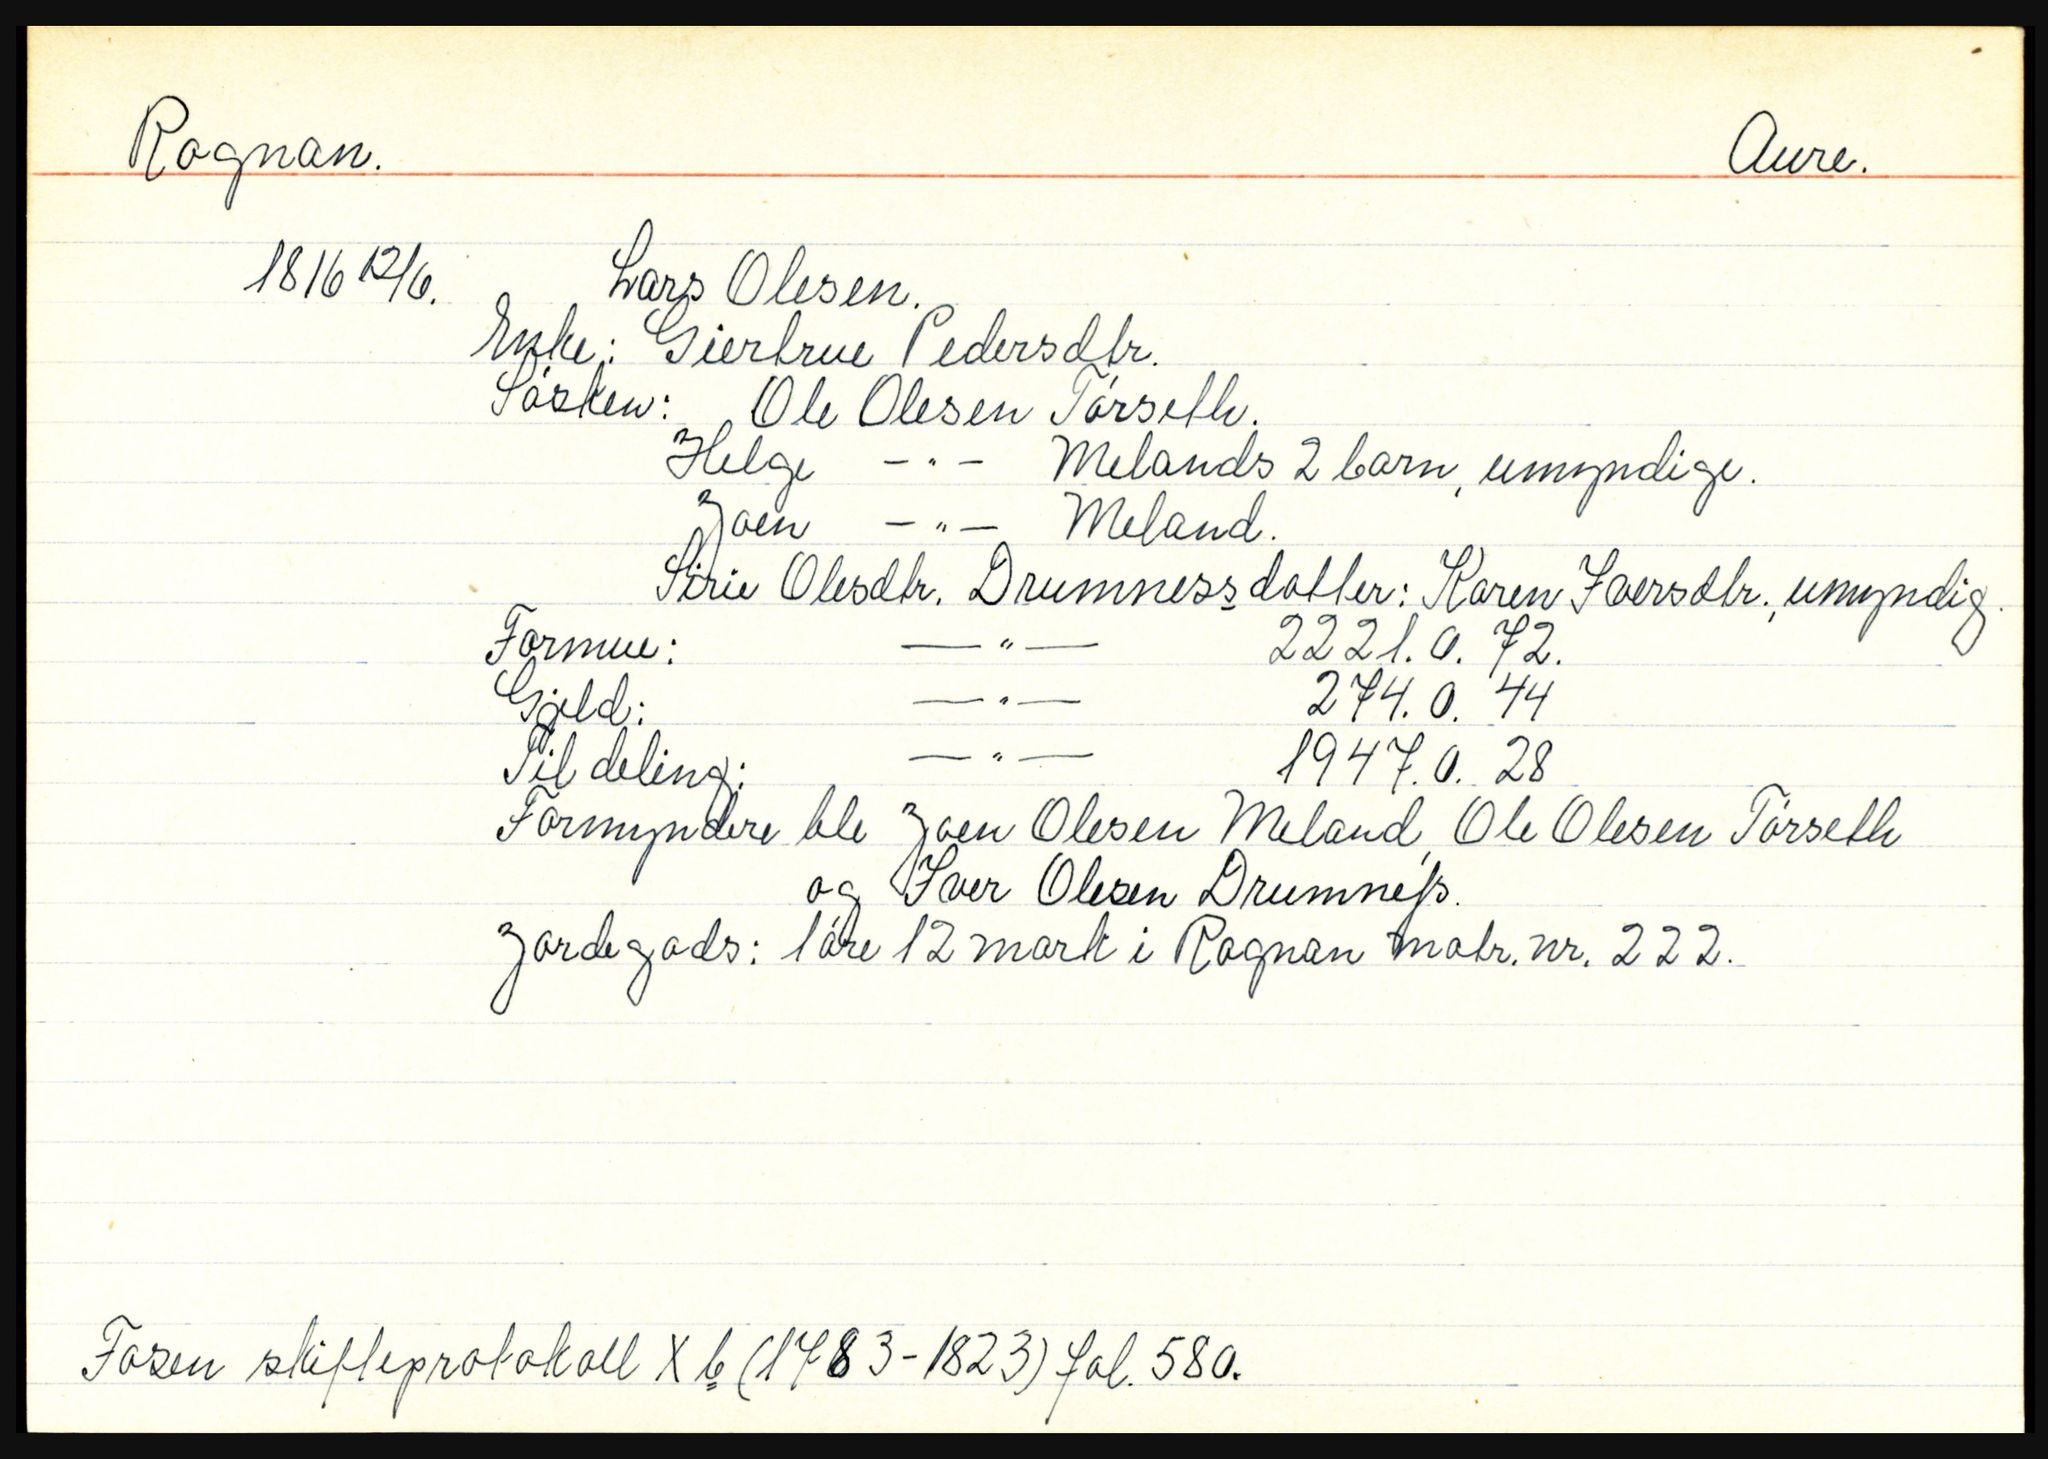 Rognan. Aure.
1816 12/6. Lars Olesen.
Enke: Giertrue Pedersdtr.
Søsken: Ole Olesen Tørseth.
Helge -"- Melands 2 barn, umyndige.
Joen -"- Meland.
Sirie Olesdtr. Drumnessdatter: Karen Iversdtr., umyndig.
Formue: -"- 2221. 0. 72.
Gjeld: -"- 274. 0. 44
Til deling: -"- 1947. 0. 28
Formyndere ble Joen Olesen Meland, Ole Olesen Tørseth
og Iver Olesen Drumness.
Jordegods: 1 øre 12 mark i Rognan matr. nr. 222.
Fosen skifteprotokoll X b (1783-1823) fol. 580.